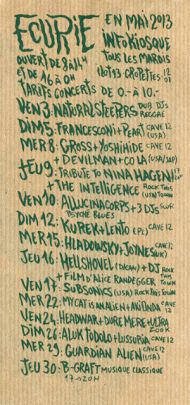 ECURIE EN MAI 2013
INFOKIOSQUE
OUVERT DE 8 À 14H TOUS LES MARDIS
ET DE 16 À 0H ILÔT 13 - CROPETTES
TARIFS CONCERTS DE 0.- À 10.-
VEN 3: NATURAL STEPPERS DUB DJS REGGAE
DIM 5: FRANCESCONI + PEARL (USA) CAVE 12
MER 8: GROSS + YOSHIHIDE CAVE 12
+ DEVILMAN + CO LA (USA/JAP)
JEU 9: TRIBUTE TO NINA HAGEN!!
+ THE INTELLIGENCE (USA) ROCK THIS TOWN
VEN 10: ALLUCINACORPS + 3 DJS
PSYCHE BLUES
DIM 12: KUPEK + LENTO (PL) CAVE 12
MER 15: HLADOWSKY + JOYNES (UK) CAVE 12
JEU 16: HELLSHOVEL (CDCAN) + DJ ROCK THIS TOWN
+ FILM D'ALICE RANDEGGER
VEN 17: SUBSONICS (USA) ROCK THIS TOWN
MER 22: MY CAT IS AN ALIEN + CAVE 12
VEN 24: HEADWAR + DURE MERE + ULTRA ZOOK
DIM 26: ALUK TODOLO + LUSSURIA CAVE 12
MER 29: GUARDIAN ALIEN (USA) CAVE 12
JEU 30: B-GRAFT MUSIQUE CLASSIQUE
17→20H